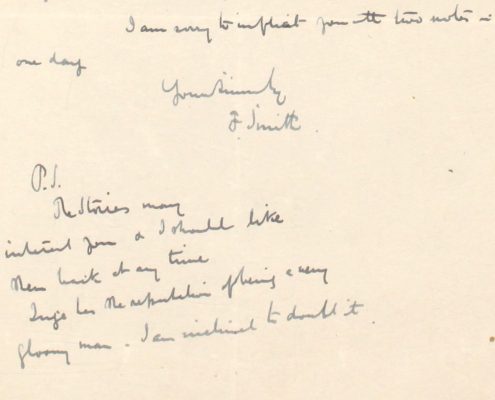 I am sorry to inflict you with two notes in
one day
Yours sincerely
F. Smith.
P.S.
The Stories may
interest you & I should like
them back at any time
Inge has the reputation of being a very
gloomy man - I am inclined to doubt it.